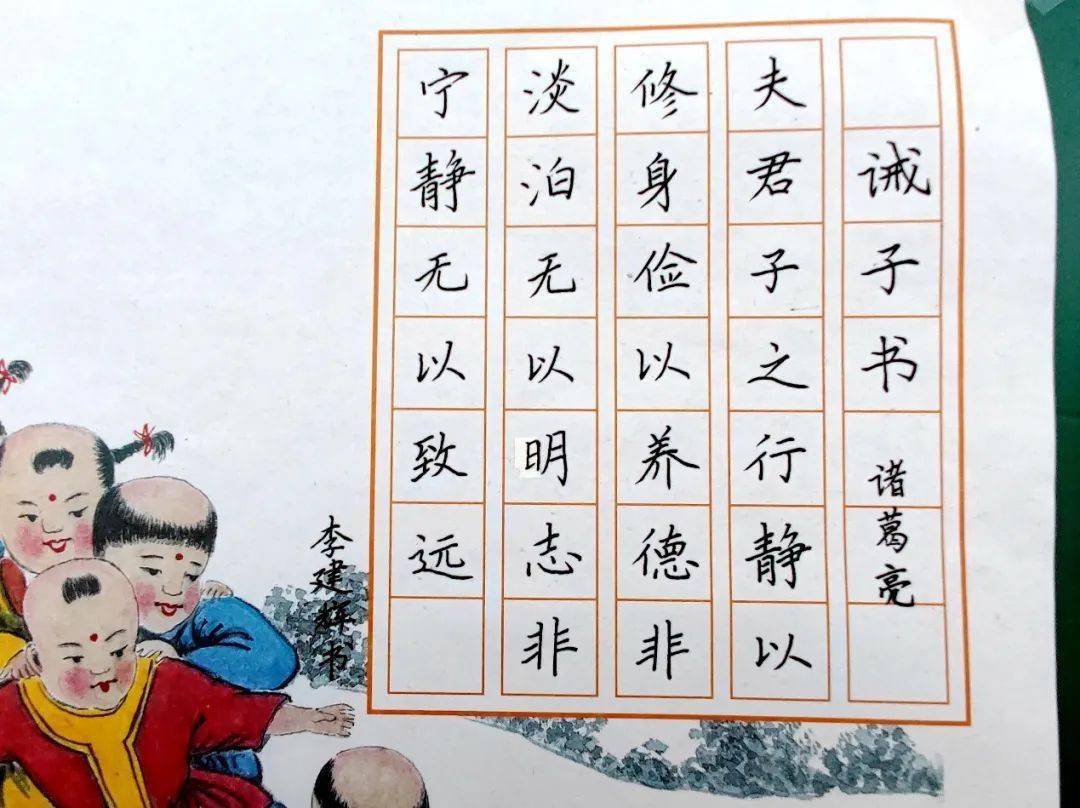 诫子书 诸葛亮
夫君子之行静以
修身俭以养德非
淡泊无以明志非
宁静无以致远
李建辉书